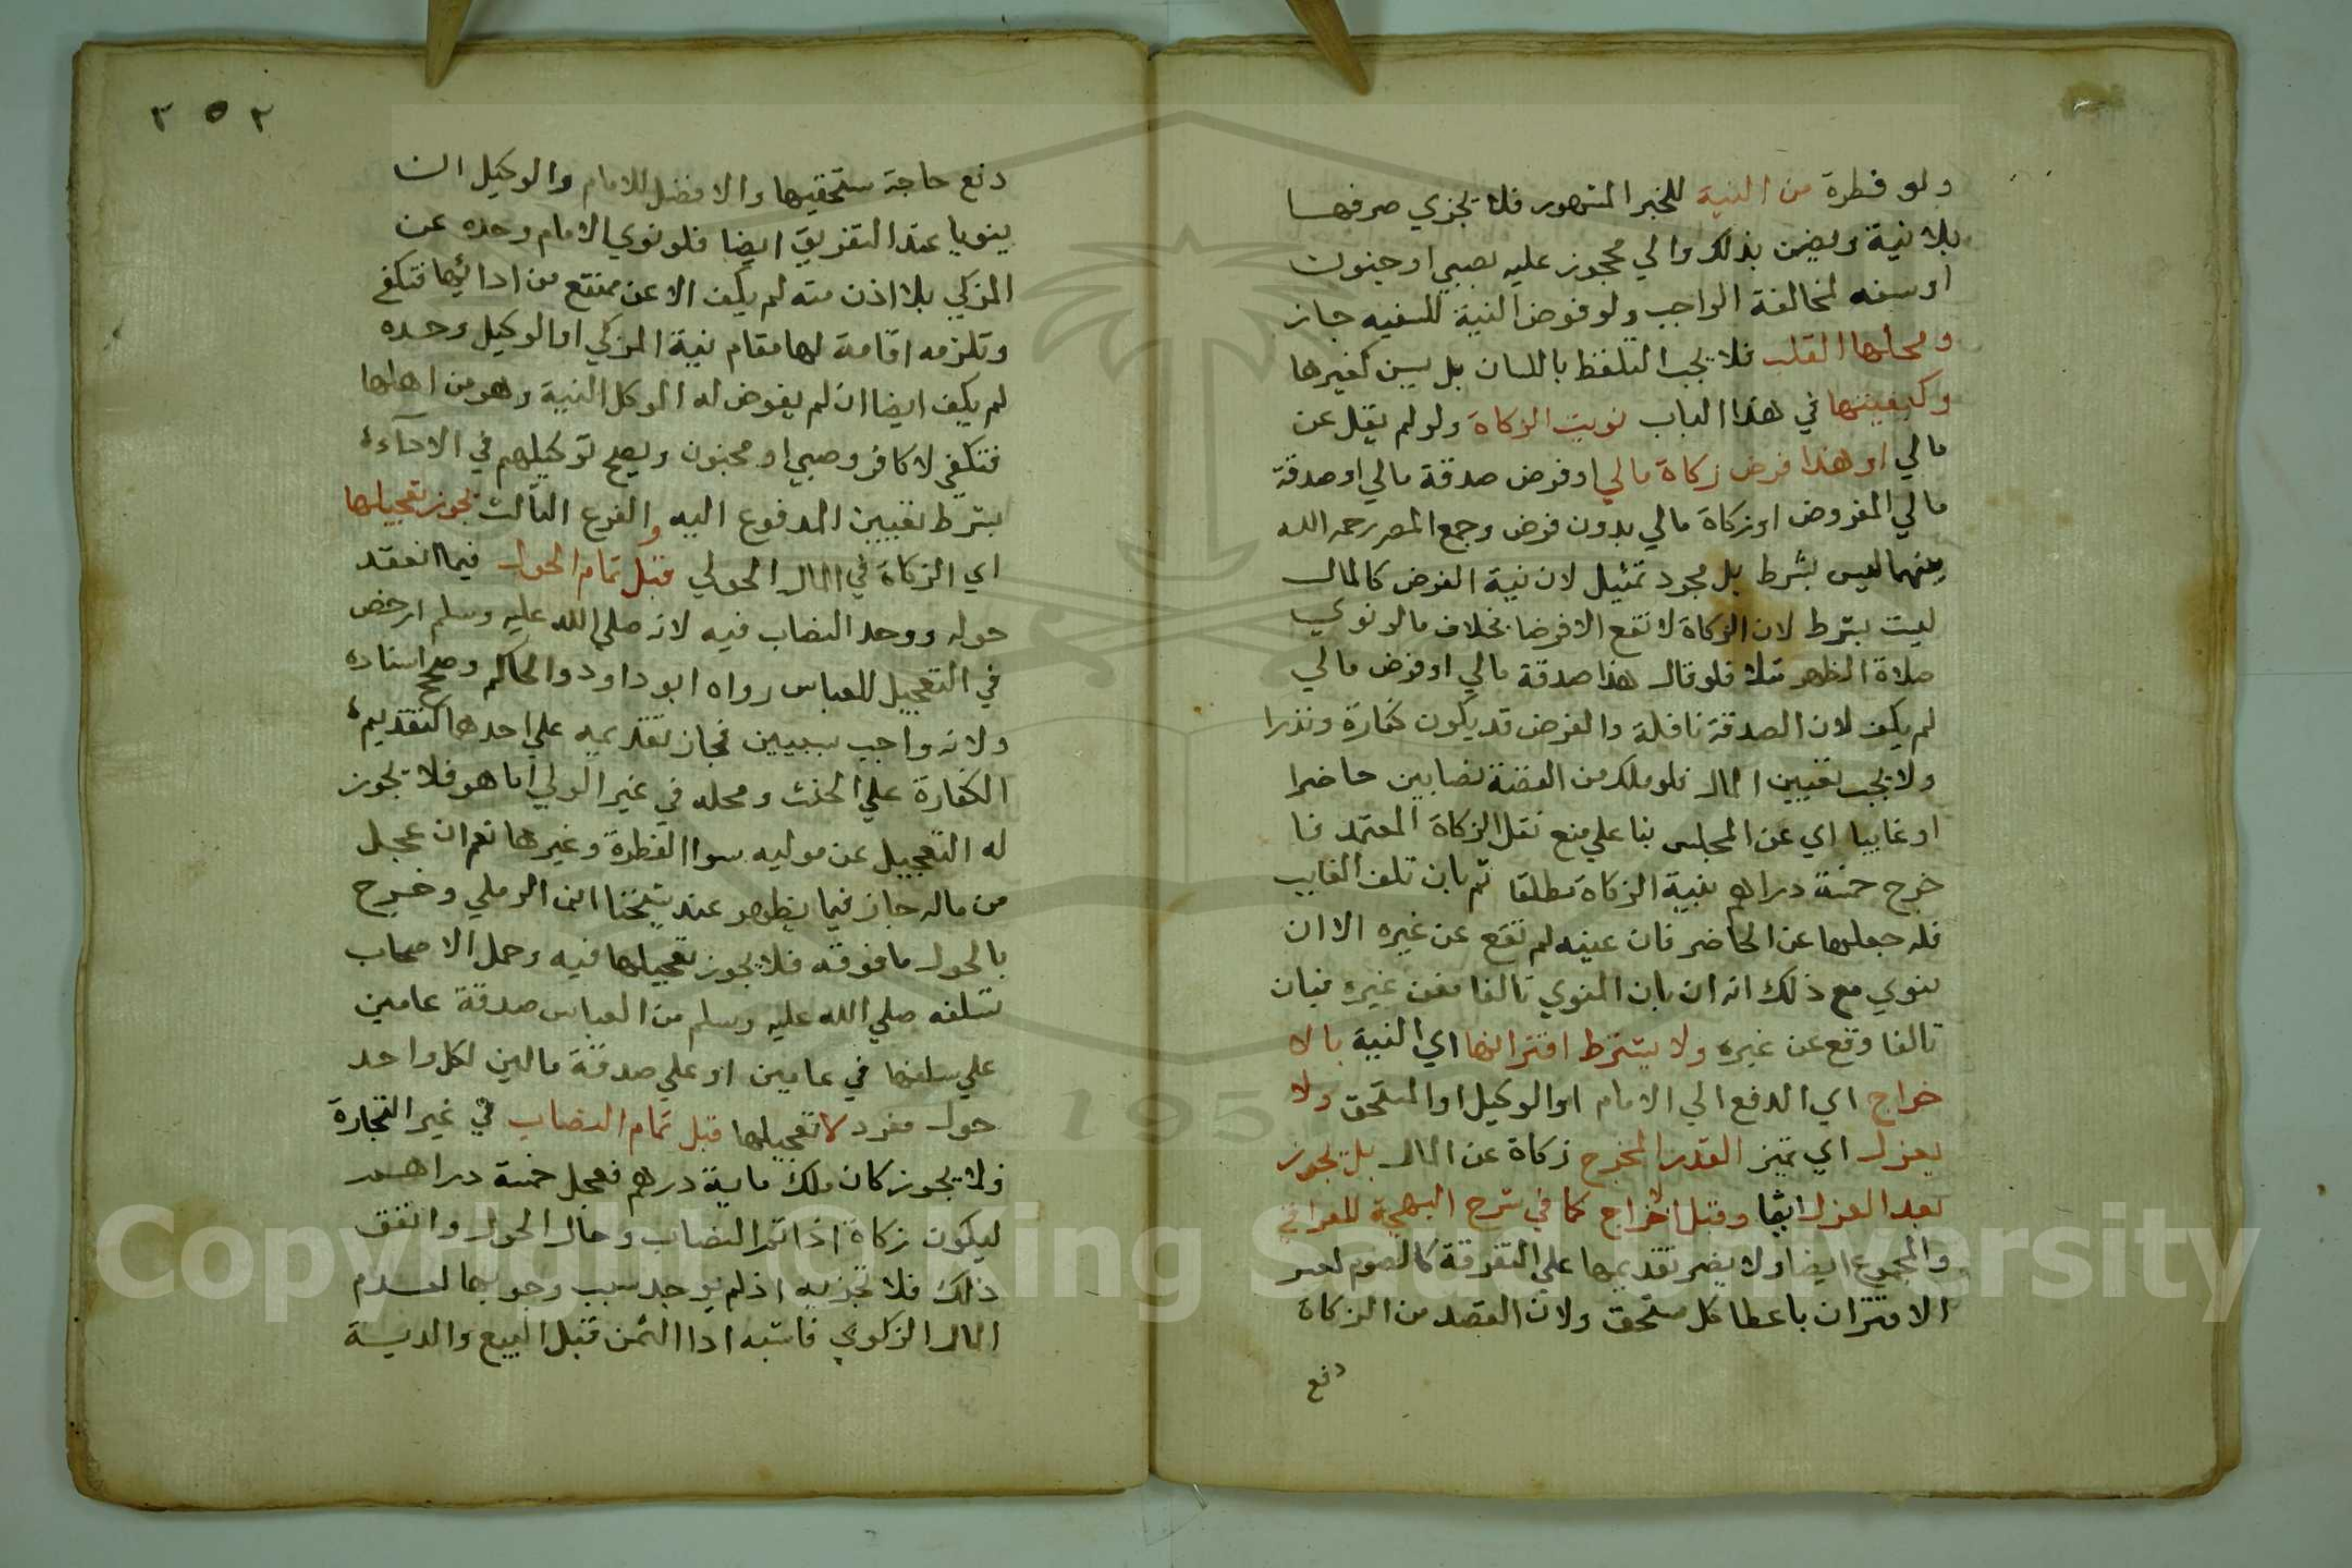 ولو فطرة من النية للخبر المشهور فلا يجزي صرفها
بلا نية ويضمن بذلك والي محجوز عليه بصبي او جنون
او سفه لمخالفة الواجب ولو فوض النية للسفيه جاز
ومحلها القلب فلا يجب التلفظ باللسان بل يسن كغيرها
وكيفيتها في هذا الباب نويت الزكاة ولو لم يقل عن
مالي او هذا فرض زكاة مالي او فرض صدقة مالي او صدقة
مالي المفروض او زكاة مالي بدون فرض وجمع المص رحمه الله
بينهما ليس بشرط بل مجرد تمثيل لان نية الفرض كالمال
ليست بشرط لان الزكاة لا تقع الا فرضا بخلاف ما لو نوي
صلاة الظهر مثلا فلو قال هذا صدقة مالي او فرض مالي
لم يكف لان الصدقة نافلة والفرض قد يكون كفارة ونذرا
ولا يجب تعيين المال فلو ملك من الفضة نصابين حاضرا
او غايبا اي عن المجلس بنا علي منع نقل الزكاة المعتمد فا
خرج خمسة دراهم بنية الزكاة مطلقا ثم بان تلف الغايب
فله جعلها عن الحاضر فان عينه لم تقع عن غيره الا ان
ينوي مع ذلك انه ان بان المنوي تالفا فعن غيره فبان
تالفا وقع عن غيره ولا يشترط اقترانها اي النية بالا
خراج اي الدفع الي الامام او الوكيل او المستحق ولا
بعزل اي تميز القدر المخرج زكاة عن المال بل يجوز
بعد العزل ايضا وقبل اخراج كما في شرح البهجة للعراقي
والمجموع ايضا ولا يضر تقديمها علي التفرقة كالصوم لعسر
الاقتران باعطا كل مستحق ولان القصد من الزكاة
دفع
٢٥٢
دفع حاجة مستحقيها والافضل للامام والوكيل ان
ينويا عند التفريق ايضا فلو نوي الامام وحده عن
المزكي بلا اذن منه لم يكف الا عن ممتنع من ادائها فتكفي
وتلزمه اقامة لها مقام نية المزكي او الوكيل وحده
لم يكف ايضا ان لم يفوض له الموكل النية وهو من اهلها
فتكفي لا كافر وصبي او مجنون ويصح توكيلهم في الادآء
بشرط تعيين المدفوع اليه والفرع الثالث يجوز تعجيلها
اي الزكاة في المال الحولي قبل تمام الحول فيما انعقد
حوله ووجد النصاب فيه لانه صلي الله عليه وسلم ارخص
في التعجيل للعباس رواه ابو داود والحاكم وصحح اسناده
ولانه واجب بسببين فجاز تقديمه علي احدهما كتقديم
الكفارة علي الحنث ومحله في غير الولي اما هو فلا يجوز
له التعجيل عن موليه سوا الفطرة وغيرها نعم ان عجل
من ماله جاز فيما يظهر عند شيخنا ابن الرملي وخرج
بالحول ما فوقه فلا يجوز تعجيلها فيه وحمل الاصحاب
تسلفه صلي الله عليه وسلم من العباس صدقة عامين
علي سلفها في عامين او علي صدقة مالين لكل واحد
حول مفرد لا تعجيلها قبل تمام النصاب في غير التجارة
فلا يجوز كان ملك ماية درهم فعجل خمسة دراهم
ليكون زكاة اذا تم النصاب وحال الحول واتفق
ذلك فلا تجزيه اذ لم يوجد سبب وجوبها لعدم
المال الزكوي فاشبه ادا الثمن قبل البيع والدية
Copyright © King Saud University
195